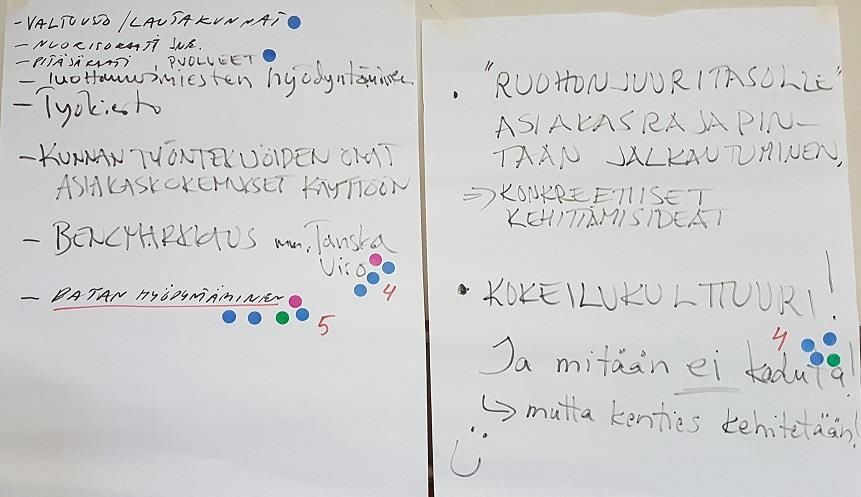 - VALTUUSTO / LAUTAKUNNAT
- NUORISORAATI JNE.
- PITÄJÄRAATI, PUOLUEET
- Luottamusmiesten hyödyntäminen
- Työkierto
- KUNNAN TYÖNTEKIJÖIDEN OMAT
ASIAKASKOKEMUKSET KÄYTTÖÖN
- BENCMARKKAUS mm. Tanska
Viro
4
- DATAN HYÖDYNTÄMINEN
5
• "RUOHONJUURITASOLLE"
ASIAKASRAJAPIN-
TAAN JALKAUTUMINEN,
⇒ KONKREETTISET
KEHITTÄMISIDEAT
• KOKEILUKULTTUURI!
4
Ja mitään ei kaduta!
↳ mutta kenties kehitetään!